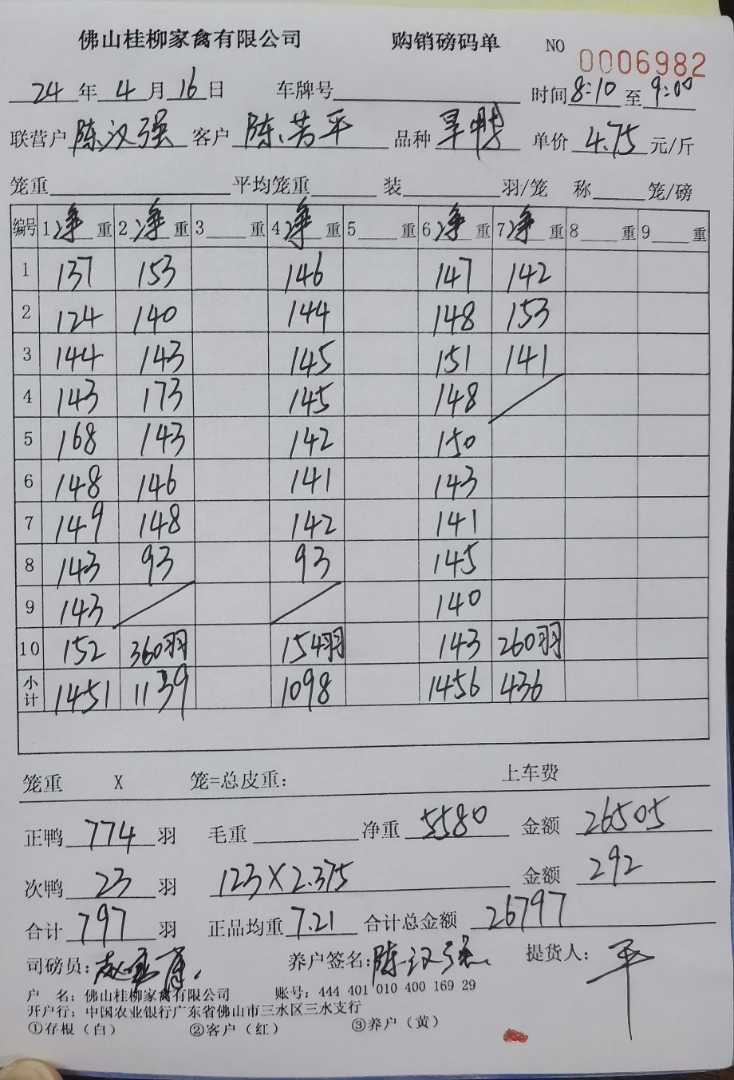 佛山桂柳家禽有限公司 购销磅码单 NO 0006982
24年4月16日 车牌号 时间8:10至9:00
联营户陈汉强 客户陈芳平 品种旱鸭 单价4.75元/斤
笼重 平均笼重 装 羽/笼 称 笼/磅
编号 1净重 2净重 3 重 4净重 5 重 6净重 7净重 8 重 9 重
1 137 153 146 147 142
2 124 140 144 148 153
3 144 143 145 151 141
4 143 173 145 148
5 168 143 142 150
6 148 146 141 143
7 149 148 142 141
8 143 93 93 145
9 143 140
10 152 360羽 154羽 143 260羽
小计 1451 1139 1098 1456 436
笼重 X 笼=总皮重: 上车费
正鸭774羽 毛重 净重5580 金额26505
次鸭23羽 123X2.375 金额292
合计797羽 正品均重7.21 合计总金额26797
司磅员: 养户签名:陈汉强 提货人:平
户 名:佛山桂柳家禽有限公司 账号:444 401 010 400 169 29
开户行:中国农业银行广东省佛山市三水区三水支行
①存根(白) ②客户(红) ③养户(黄)